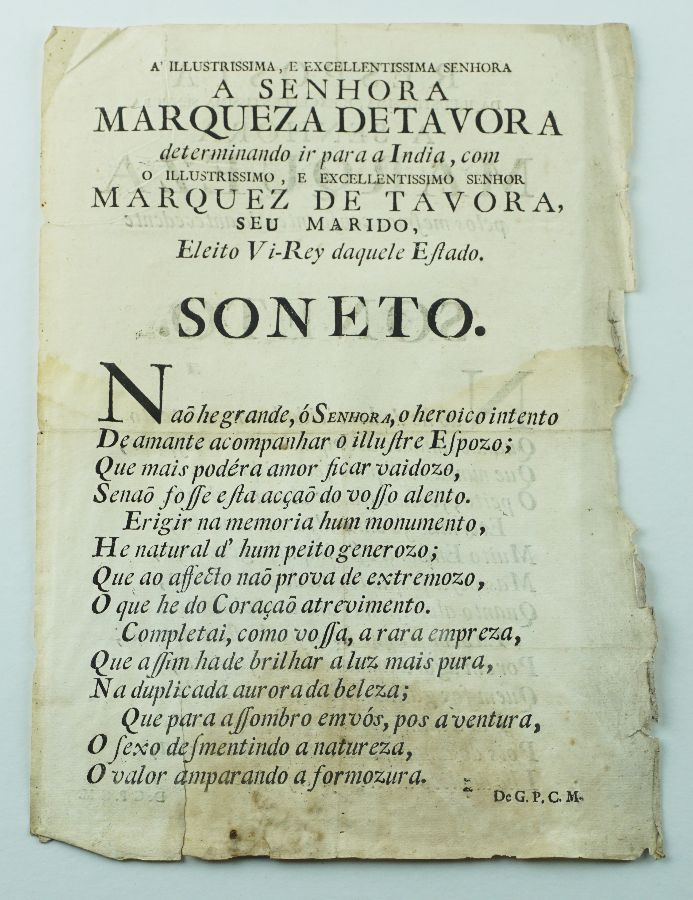 A' ILLUSTRISSIMA, E EXCELLENTISSIMA SENHORA
A SENHORA
MARQUEZA DETAVORA
determinando ir para a India, com
O ILLUSTRISSIMO, E EXCELLENTISSIMO SENHOR
MARQUEZ DE TAVORA,
SEU MARIDO,
Eleito Vi-Rey daquele Eſtado.
SONETO.
Naõ he grande, ó SENHORA, o heroico intento
De amante acompanhar o illuſtre Eſpozo;
Que mais podéra amor ficar vaidozo,
Senaõ foſſe eſta acçaõ do voſſo alento.
Erigir na memoria hum monumento,
He natural d' hum peito generozo;
Que ao affecto naõ prova de extremozo,
O que he do Coraçaõ atrevimento.
Completai, como voſſa, a rara empreza,
Que aſſim hade brilhar a luz mais pura,
Na duplicada aurora da beleza;
Que para aſſombro em vós, pos a ventura,
O ſexo deſmentindo a natureza,
O valor amparando a formozura.
De G. P. C. M.